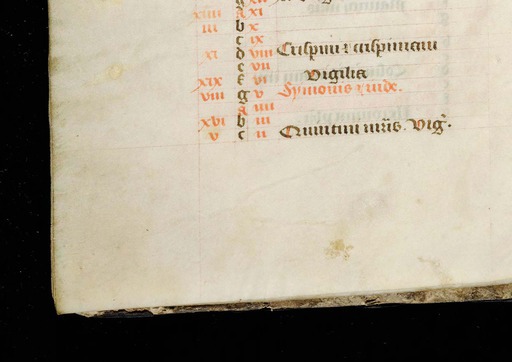 xiiii A xi
iii b x
c ix
xi d viii Crispini et crispiniani
e vii
xix f vi Vigilia
viii g v Symonis et iude.
A iiii
xvi b iii
v c ii Quintini mris. Vig.